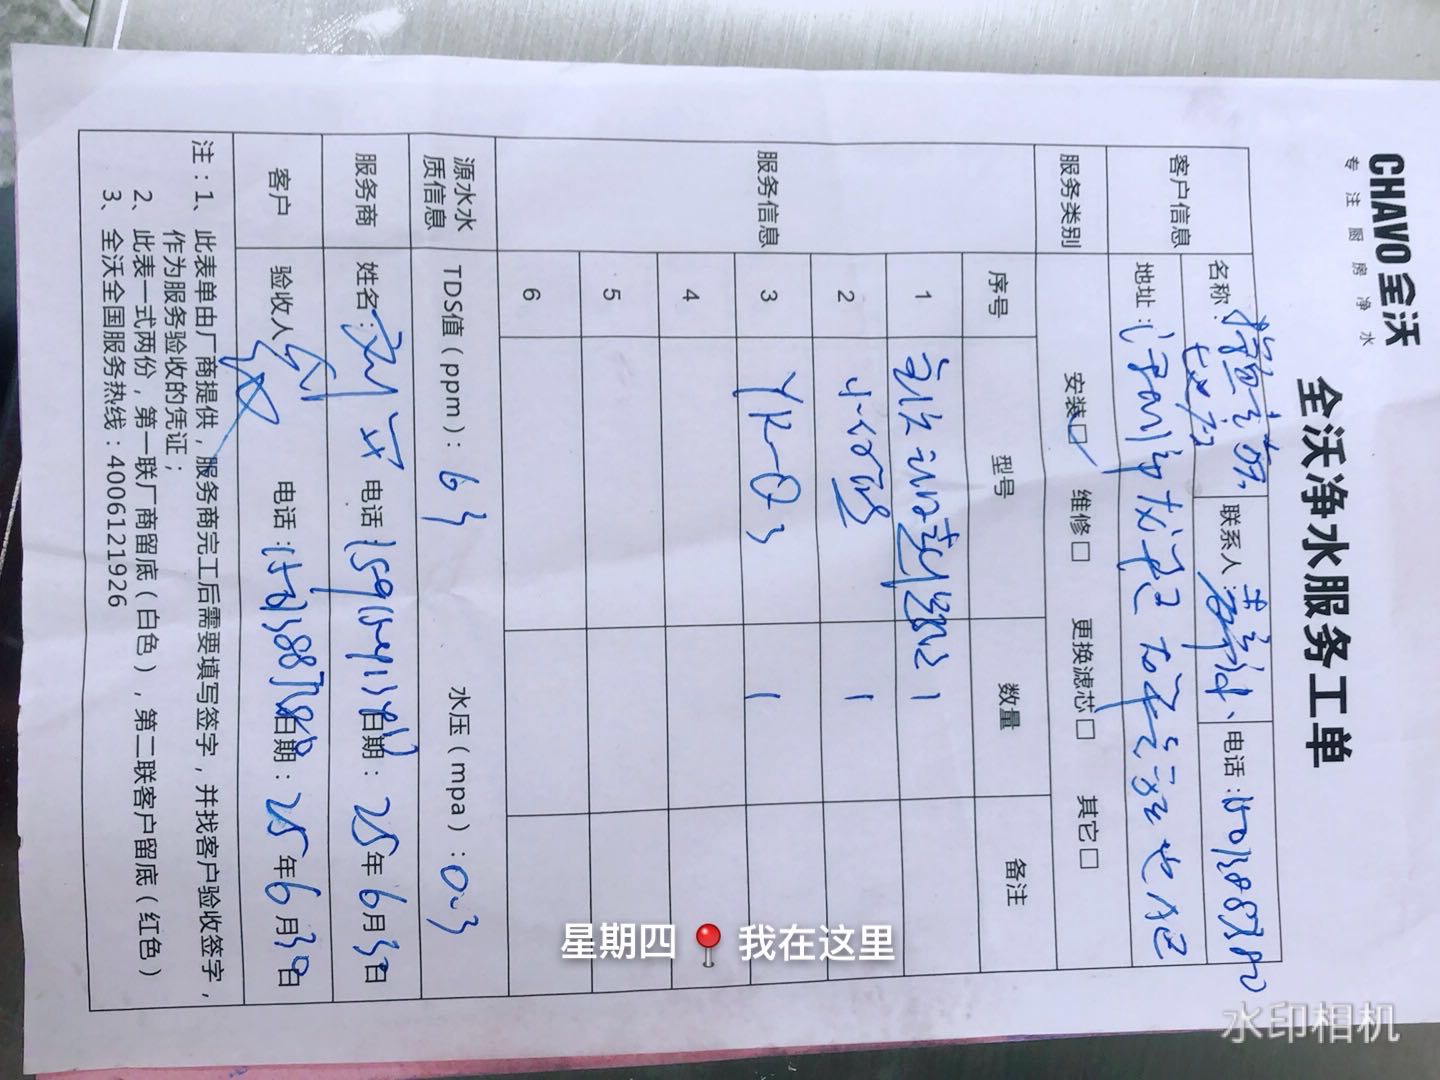 CHAVO全沃
专注厨房净水
全沃净水服务工单
客户信息
名称：
联系人：
电话：
地址：
服务类别
安装☑ 维修□ 更换滤芯□ 其它□
服务信息
序号 型号 数量 备注
1 1
2 1
3 YR-Q3 1
4
5
6
源水水质信息
TDS值（ppm）：63 水压（mpa）：0.3
服务商
姓名： 电话： 日期：25年6月30日
客户
验收人： 电话： 日期：25年6月30日
注：1、此表单由厂商提供，服务商完工后需要填写签字，并找客户验收签字，
作为服务验收的凭证；
2、此表一式两份，第一联厂商留底（白色），第二联客户留底（红色）
3、全沃全国服务热线：4006121926
星期四 我在这里
水印相机